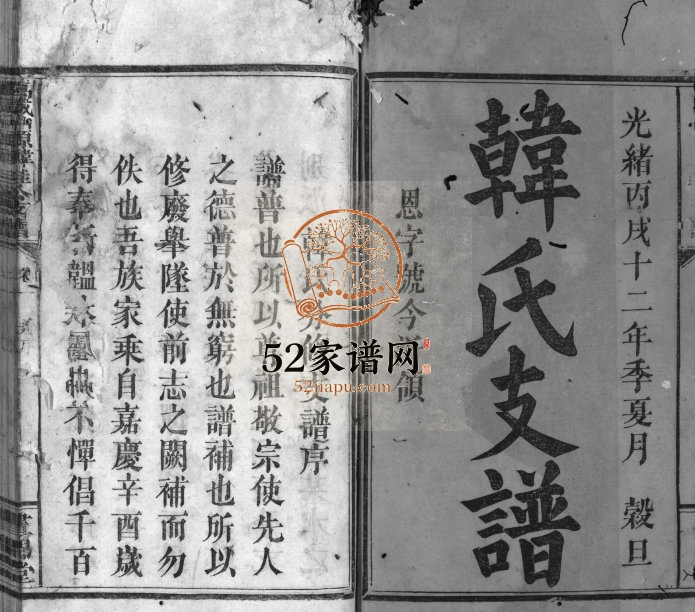 光緒丙戌十二年季夏月 穀旦
韓氏支譜
恩字號今 領
韓氏 譜序
譜普也所以 祖敬宗使先人
之德普於無窮也譜補也所以
修廢舉墜使前志之闕補而勿
佚也吾族家乘自嘉慶辛酉歲
得奉 不憚倡千百
52家谱网
52jiapu.com